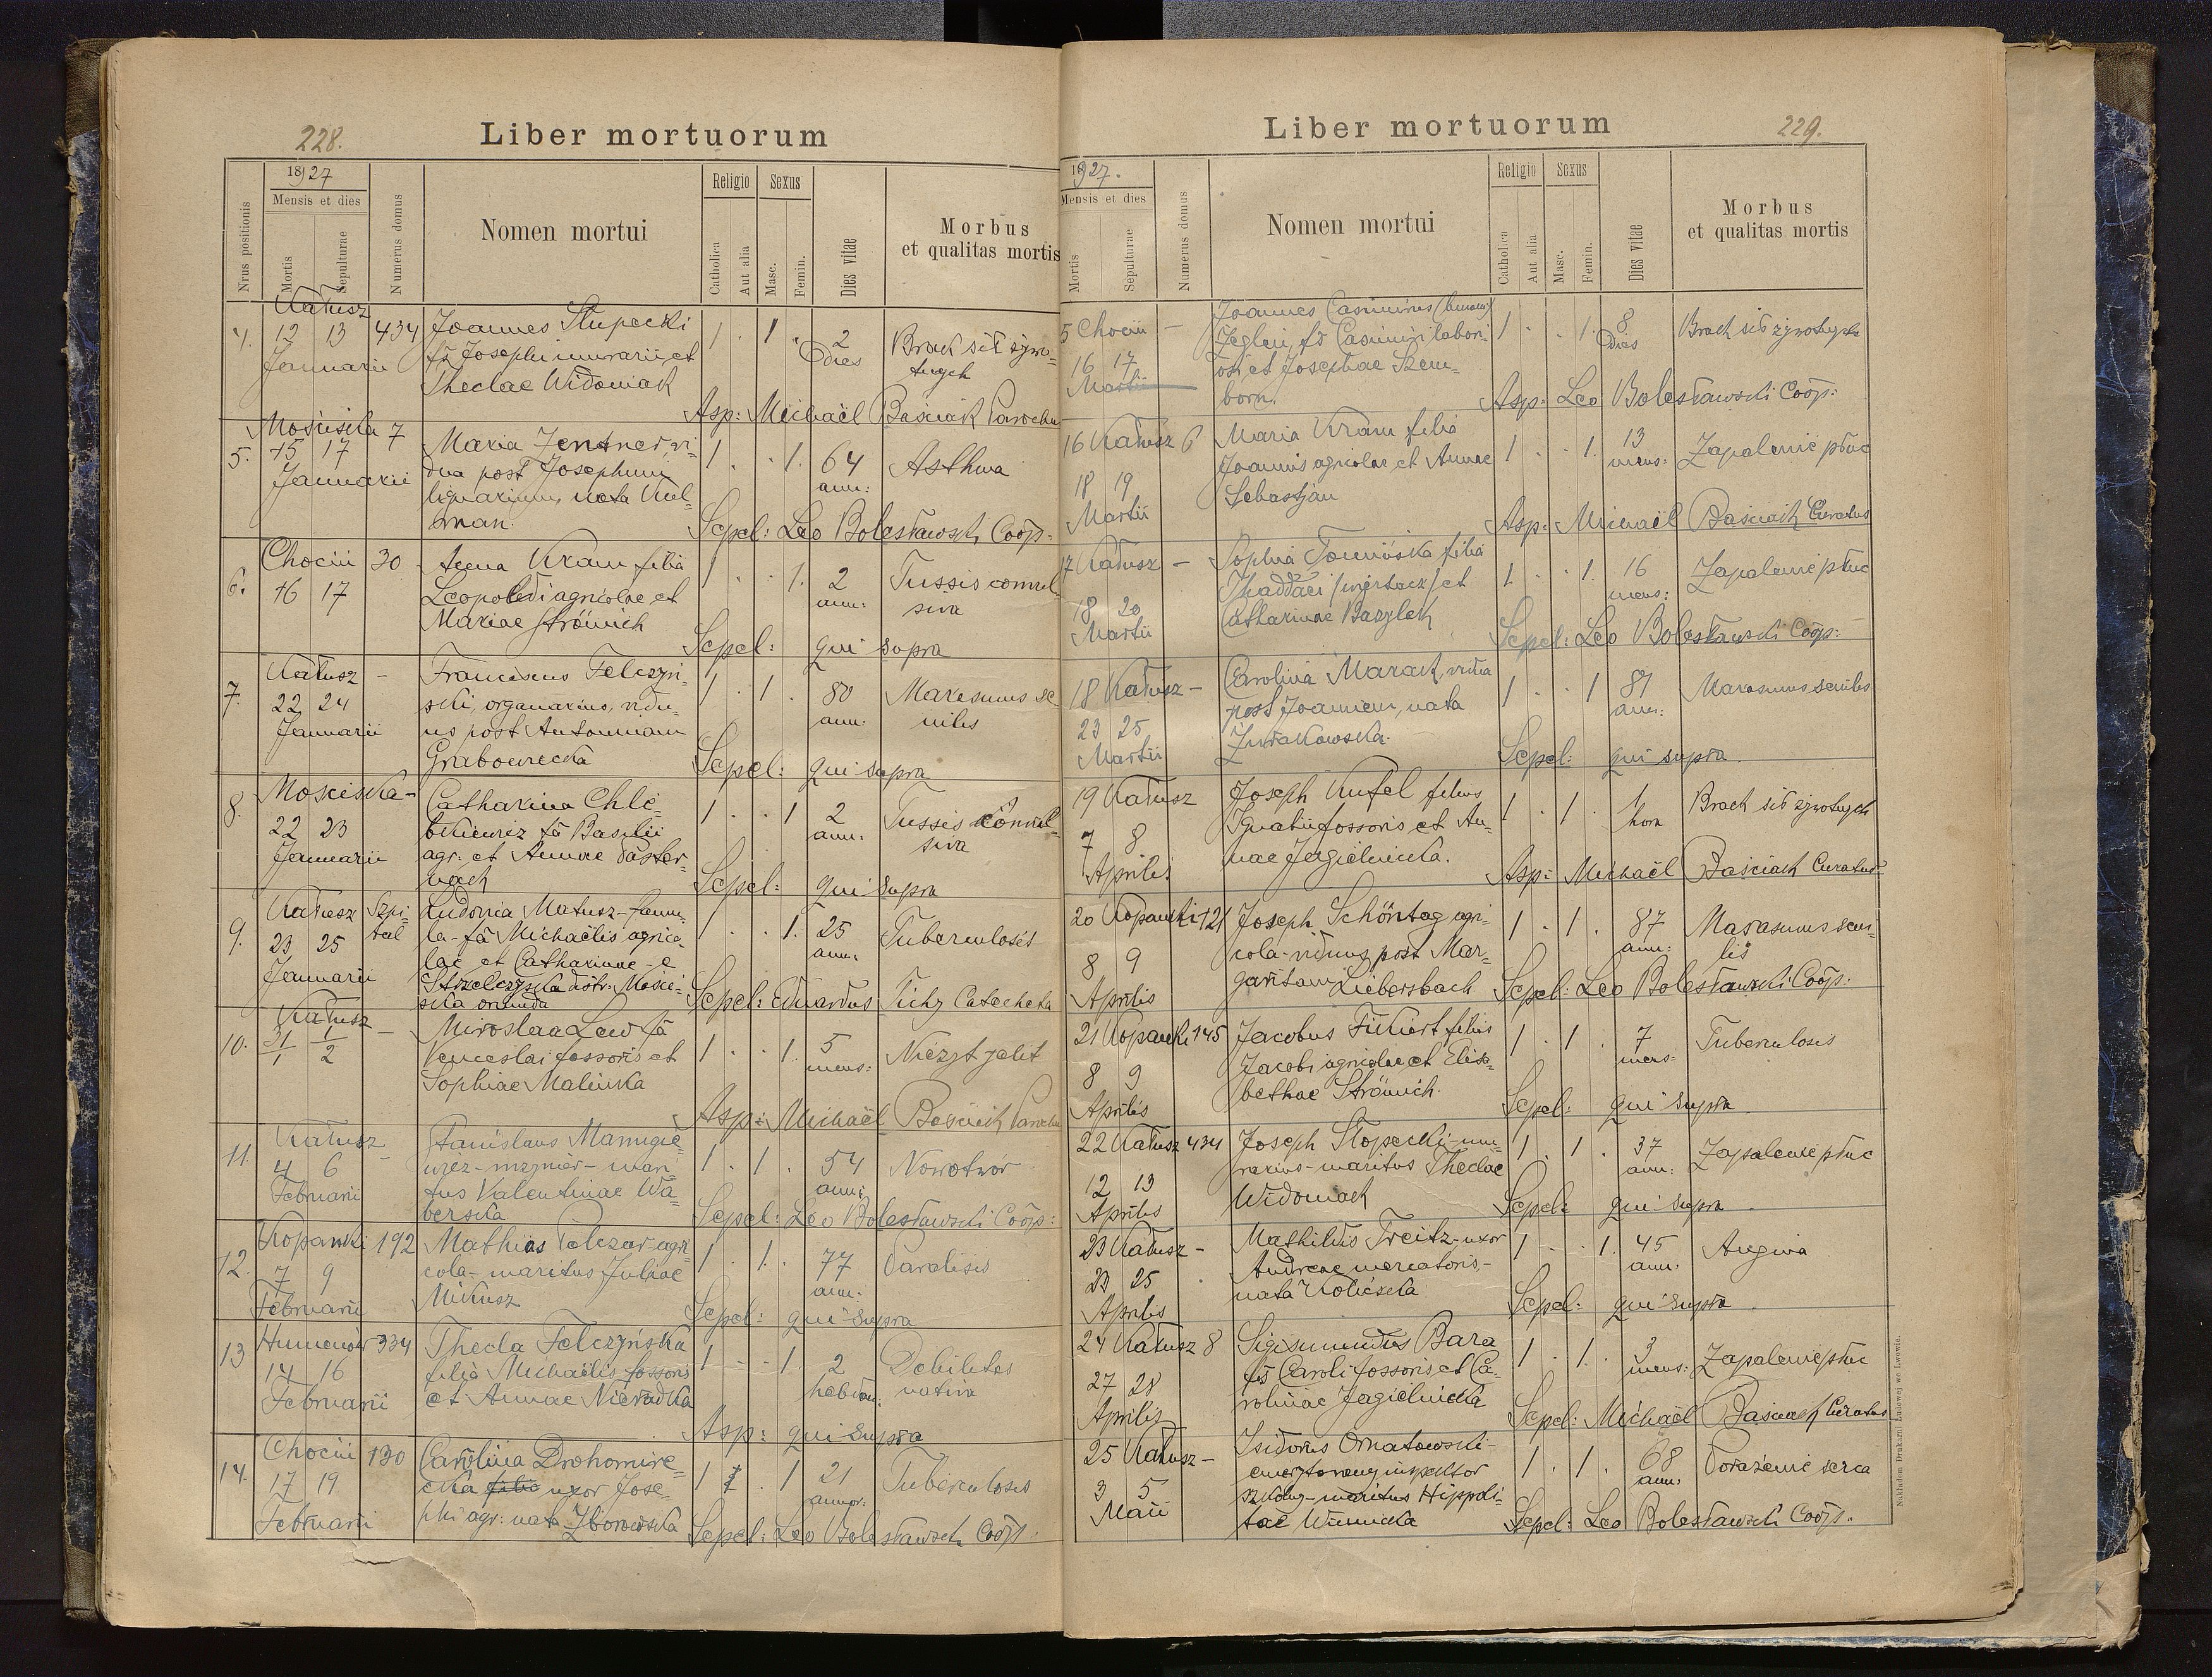 228.
Liber mortuorum
Nrus positionis
18927
Mensis et dies
Mortis
Sepulturae
Numerus domus
Nomen mortui
Religio
Catholica
Aut alia
Sexus
Masc.
Femin.
Dies vitae
Morbus
et qualitas mortis
Kałusz
4. 12 13 434 Joannes Słupecki 1 . 1 . 2 Brak sił żywo-
Januarii fs Josephi murarii et dies tnych
Theclae Widomiak
Asp: Michaël Baściak Parochus
Mościska 7
5. 15 17 Maria Zentner vi- 1 . . 1. 64 Asthma
Januarii dua post Josephum ann:
lignarium, nata Kul-
man.
Sepel: Leo Bolesławski Coop.
Chocin 30
6. 16 17 Anna Kram filia 1 . . 1. 2 Tussis convul
Leopoldi agricolae et ann: siva
Mariae Strömich
Sepel: qui supra
Kałusz -
7. 22 24 Franciscus Felczyń- 1 . 1 . 80 Marasmus se
Januarii ski, organarius, vidu- ann: nilis
us post Antoniam
Grabowiecka
Sepel: qui supra
Mościska -
8. 22 23 Catharina Chle- 1 . . 1 2 Tussis convul-
Januarii bkiewicz fa Basilii ann: siva
agr. et Annae Paster-
nach
Sepel: qui supra
Kałusz Szpi-
tal
9. 23 25 Ludovia Matusz - famu- 1 . . 1. 25 Tuberculosis
Januarii la - fa Michaëlis agrico- ann:
lae et Catharinae - e
Strzelczyska distr. Mości-
ska oriunda
Sepel: Eduardus Tichy Catecheta
Kałusz -
10. 31/1 1/2 Miroslaa Lew fa 1 . . 1. 5 Nieżyt jelit
Venceslai fossoris et mens:
Sophiae Malinka
Asp: Michaël Baściak Parochus
Kałusz -
11. 4 6 Stanislaus Manugie- 1 . 1 . 54 Nowotwór
Februarii wicz - inżynier - mari- ann:
tus Valentinae Wa-
berska
Sepel: Leo Bolesławski Coop:
Kopanki 192
12. 7 9 Mathias Pelczar agri 1 . 1. . 77 Paralisis
Februarii cola - maritus Juliae ann:
Mikusz
Sepel: qui supra
Humenów 334
13 14 16 Thecla Felczyńska 1 - - 1. 2 Debilitas
Februarii filia Michaëlis fossoris hebdom: nativa
et Annae Nieradka
Asp: qui supra
Chocin 130
14. 17 19 Carolina Drohomire- 1 . 1 21 Tuberculosis
Februarii cka filia uxor Jose- annor.
phi agr. nata Zborowska
Sepel: Leo Bolesławski Coop.
229.
Liber mortuorum
18927.
Mensis et dies
Mortis
Sepulturae
Numerus domus
Nomen mortui
Religio
Catholica
Aut alia
Sexus
Masc.
Femin.
Dies vitae
Morbus
et qualitas mortis
5 Chocin - Joannes Casimirus
16 17 Jeglei, fs Casimiri labori- 1 . . 1. 8 Brak sił żywotnych
Martii osi et Josephae Szem- dies
born.
Asp: Leo Bolesławski Coop:
16 Kałusz 6 Maria Kram filia 1 . . 1. 13 Zapalenie płuc
18 19 Joannis agricolae et Annae mens:
Martii Sebastjan
Asp: Michaël Baściak Curatus
17 Kałusz - Sophia Tomińska filia 1. . . 1. 16 Zapalenie płuc
18 20 Thaddaei et mens:
Martii Catharinae Bazylek
Sepel: Leo Bolesławski Coop:
18 Kałusz - Carolina Marach, vidua 1 . . 1 81 Marasmus senilis
23 25 post Joannem, nata ann:
Martii Żurakowska.
Sepel: qui supra.
19 Kałusz Joseph Kufel filius 1 . 1 . 1 Brak sił żywotnych
7 8 Ignatii fossoris et An- hora
Aprilis nae Jagielnicka.
Asp: Michaël Baściak Curatus
20 Kopanki 121 Joseph Schöntag agri- 1 . 1 . 87 Marasmus seni-
8 9 cola - viduus post Mar- ann: lis
Aprilis garitam Liebersbach
Sepel: Leo Bolesławski Coop:
21 Kopanki 145 Jacobus Fikiert filius 1 . 1 . 7 Tuberculosis
8 9 Jacobi agricolae et Elisa- mens:
Aprilis bethae Strömich.
Sepel: qui supra.
22 Kałusz 434 Joseph Słopecki - mu- 1 . 1 . 37 Zapalenie płuc
12 13 rarius - maritus Theclae ann:
Aprilis Widomiak
Sepel: qui supra.
23 Kałusz - Mathildis Treitz - uxor 1 . . 1. 45 Angina
23 25 Andreae mercatoris - ann:
Aprilis nata Kolieska
Sepel: qui supra.
24 Kałusz 8 Sigismundus Bara 1 . 1. . 3 Zapalenie płuc
27 28 fs Caroli fossoris et Ca- mens:
Aprilis rolinae Jagielnicka
Sepel: Michaël Baściak Curatus
25 Kałusz - Isidorus Ornatowski - 1 . 1 . 68 Porażenie serca
3 5 emerytowany inspektor ann:
Maii szkolny - maritus Hippoli-
tae Winnicka
Sepel: Leo Bolesławski Coop.
Nakładem Drukarni Ludowej we Lwowie.